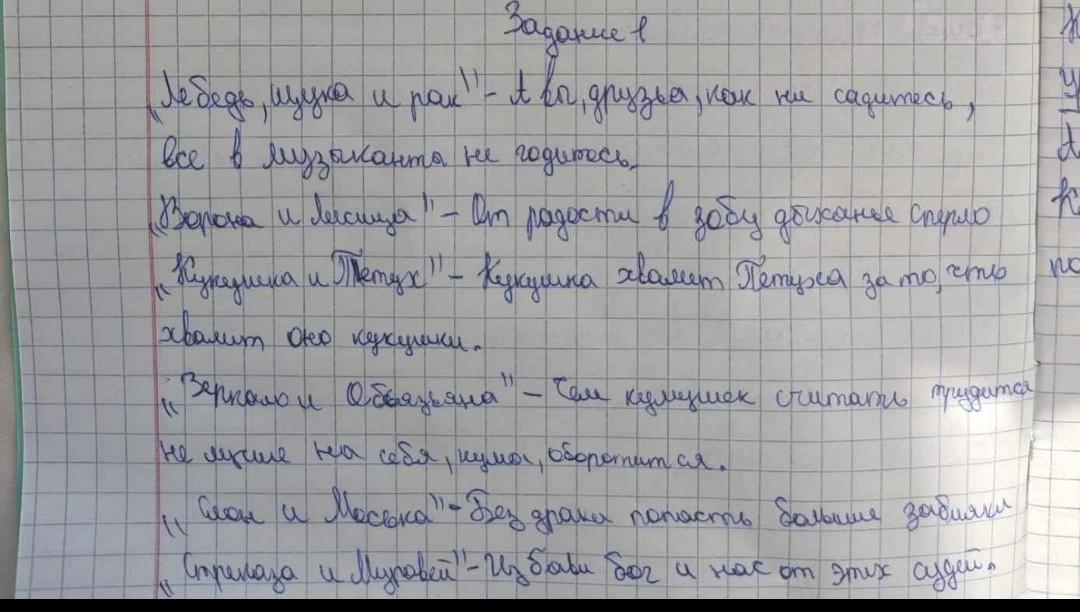 Задание 1
„Лебедь, щука и рак" - А вы, друзья, как ни садитесь,
все в музыканты не годитесь.
„Ворона и Лисица" - От радости в зобу дыханье сперло
„Кукушка и Петух" - Кукушка хвалит Петуха за то, что
хвалит оно кукушки.
„Зеркало и Обезьяна" - Чем кумушек считать трудится
не лучше на себя, кума, оборотится.
„Слон и Моська" - Без драки попасть больше забияки
„Стреказа и Муравей" - Избави бог и нас от этих судей.
У
А
К
по